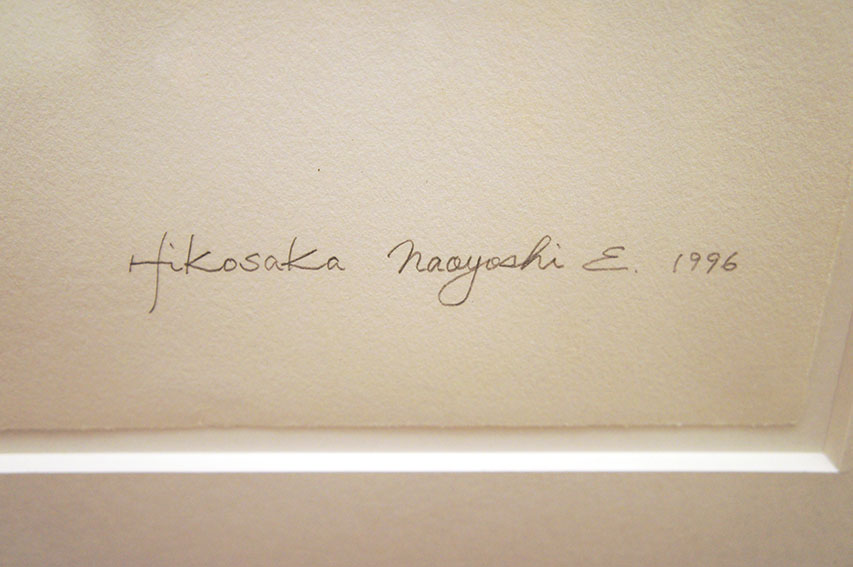 Hikosaka Naoyoshi E. 1996